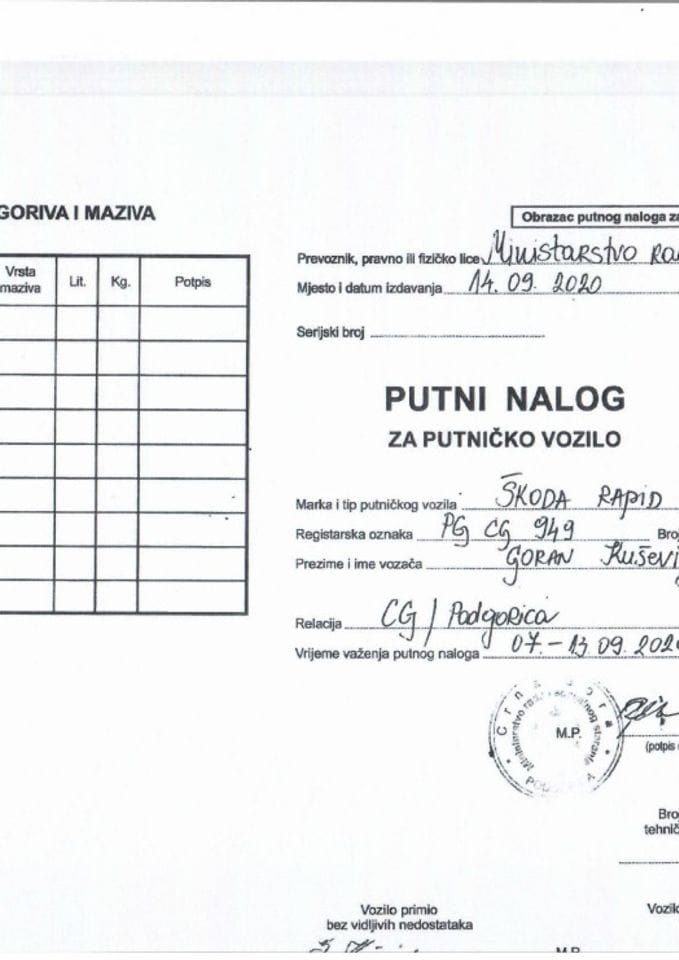 GORIVA I MAZIVA
Vrsta
maziva
Lit.
Kg.
Potpis
Obrazac putnog naloga za
Prevoznik, pravno ili fizičko lice Ministarstvo ra
Mjesto i datum izdavanja 14. 09. 2020
Serijski broj
PUTNI NALOG
ZA PUTNIČKO VOZILO
Marka i tip putničkog vozila ŠKODA RAPID
Registarska oznaka PG CG 949 Broj
Prezime i ime vozača GORAN Ruševi
Relacija CG / Podgorica
Vrijeme važenja putnog naloga 07.-13.09.2020
Crna Gora
M.P.
(potpis
Broj
tehnič
Vozilo primio
bez vidljivih nedostataka
Vozilo
M.P.